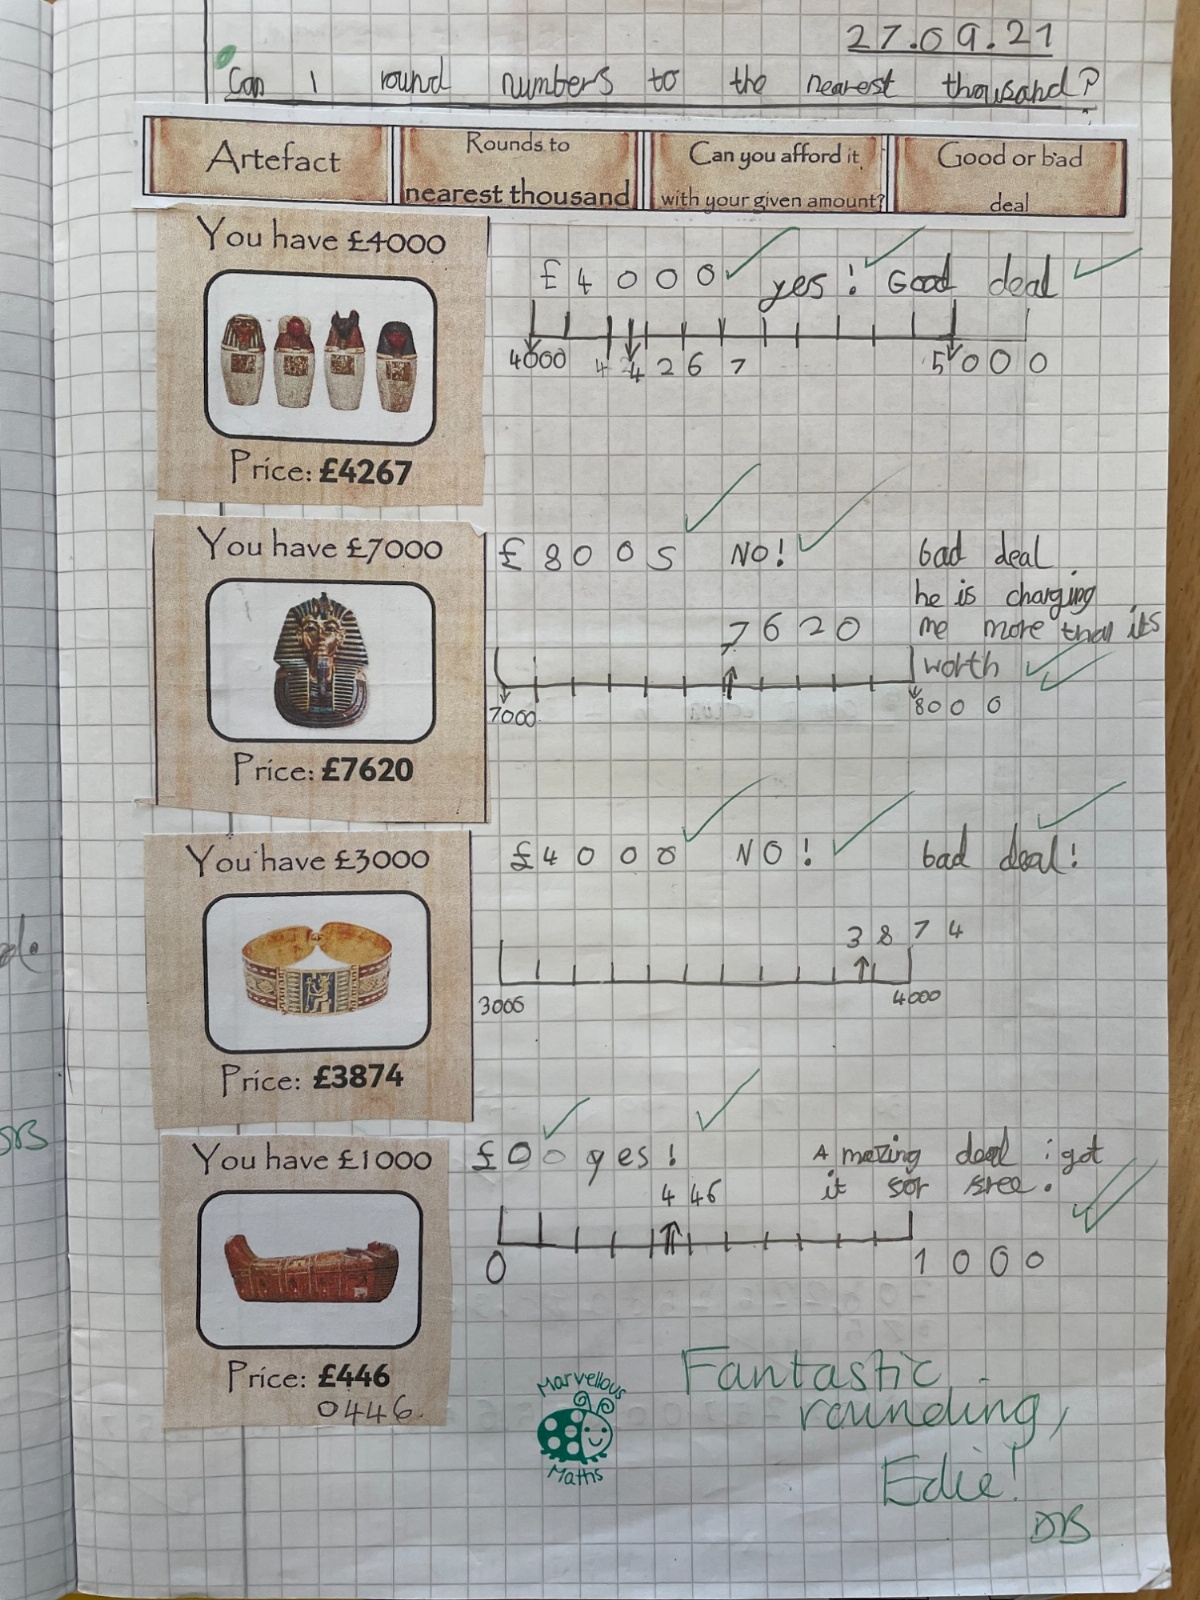 27.09.21
Can i round numbers to the nearest thousand?
Artefact
Rounds to
nearest thousand
Can you afford it
with your given amount?
Good or bad
deal
You have £4000
Price: £4267
£4000 yes! Good deal
4000 4 4267 5000
You have £7000
Price: £7620
£8000 NO! bad deal
he is charging
7620 me more than its
worth
7000 8000
You have £3000
Price: £3874
£4000 NO! bad deal!
3874
3000 4000
You have £1000
Price: £446
0446
£00 yes! Amazing deal i got
446 it for free.
0 1000
Marvellous
Maths
Fantastic
rounding,
Edie!
DB
DB